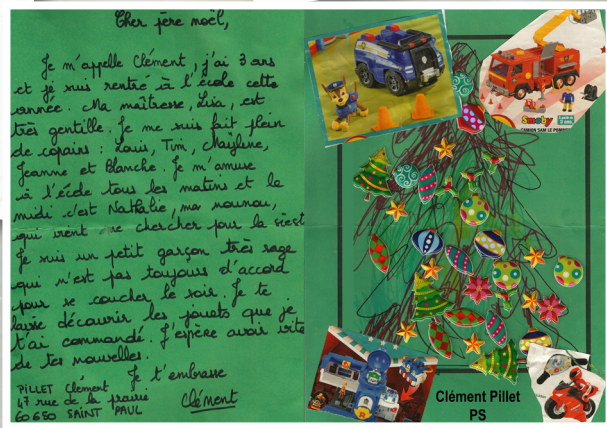 Cher père noël,
Je m'appelle Clément, j'ai 3 ans
et je suis rentré à l'école cette
année. Ma maîtresse, Lisa, est
très gentille. Je me suis fait plein
de copains : Louis, Tim, Maÿline,
Jeanne et Blanche. Je m'amuse
à l'école tous les matins et le
midi c'est Nathalie, ma nounou,
qui vient me chercher pour la sieste
Je suis un petit garçon très sage
qui n'est pas toujours d'accord
pour se coucher le soir. Je te
laisse découvrir les jouets que je
t'ai commandé. J'espère avoir vite
de tes nouvelles.
Je t'embrasse
Clément
PILLET Clément
47 rue de la prairie
60650 SAINT PAUL
Smoby
CAMION SAM LE POMPIER
Clément Pillet
PS